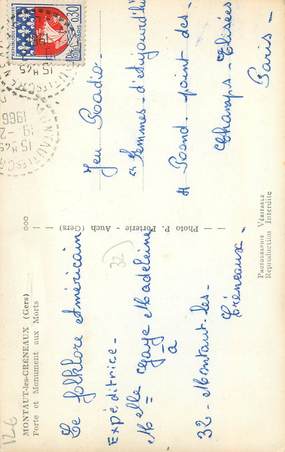 MONTAUT-les-CRÉNEAUX (Gers)
Porte et Monument aux Morts
Le folklore Américain
Expéditrice -
Melle Gaye Madeleine
à
32 - Montaut-les-
Créneaux -
32
Photo P. Porterie - Auch (Gers)
Jeu Radio
"Femmes - d'aujourd'hui
4 Rond-point des-
Champs - Elisées
Paris -
PHOTOGRAPHIE VÉRITABLE
Reproduction Interdite
0,30
15H45
19-2
1966
126